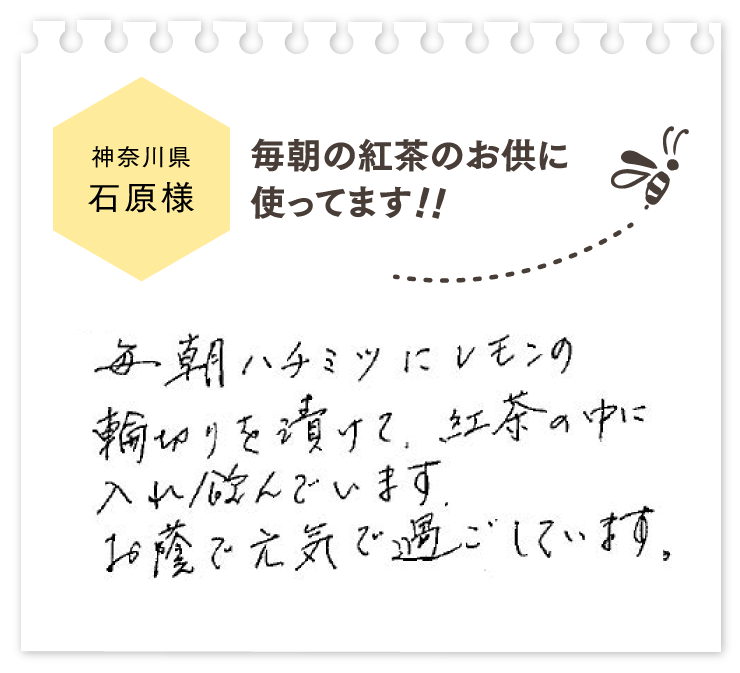 神奈川県
石原様
毎朝の紅茶のお供に
使ってます!!
毎朝ハチミツにレモンの
輪切りを漬けて、紅茶の中に
入れ飲んでいます。
お蔭で元気で過ごしています。